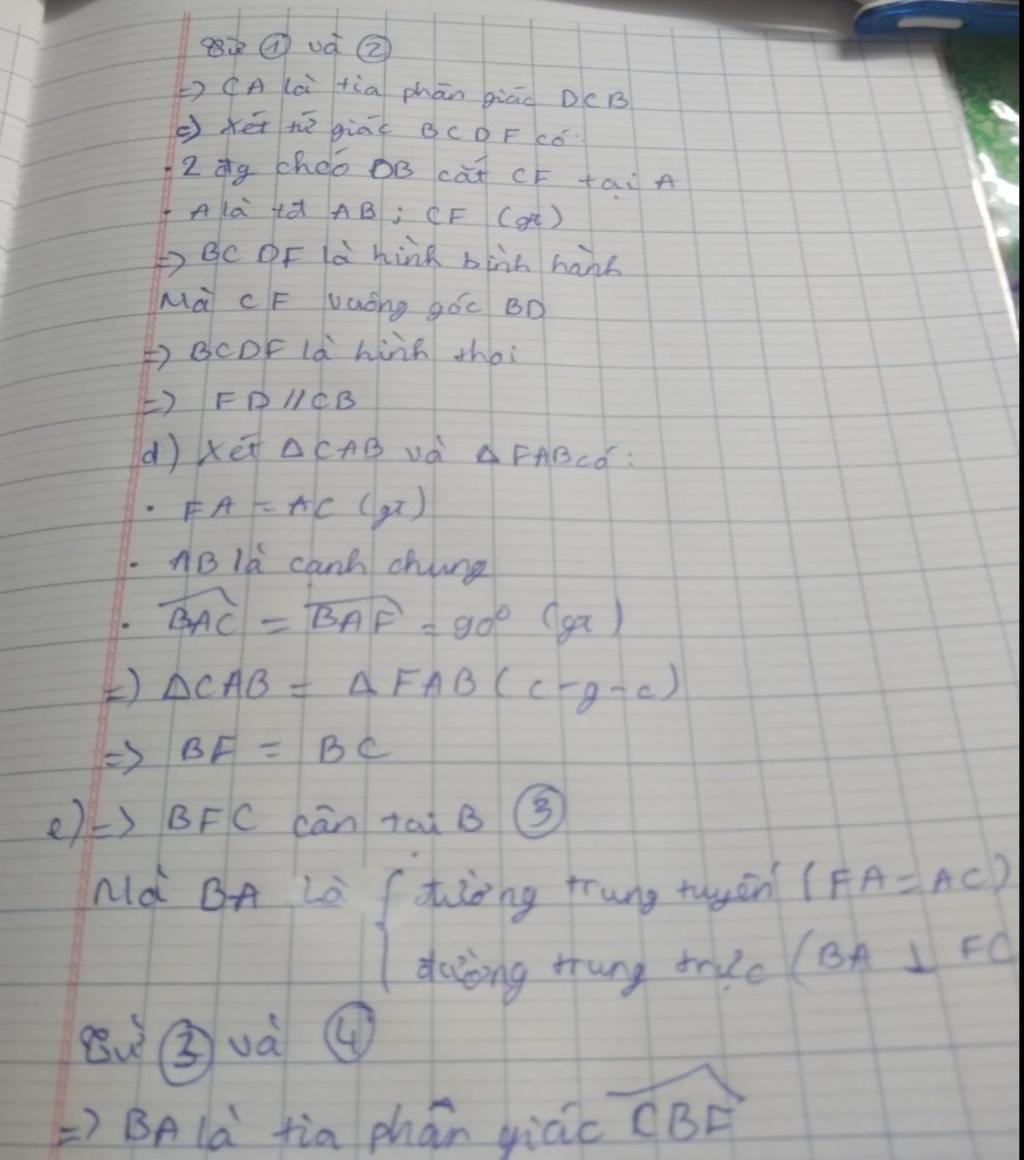 Từ ① và ②
=> CA là tia phân giác DCB
c) Xét tứ giác BCDF có:
• 2 đg chéo DB cắt CF tại A
• A là tđ AB; CF (gt)
=> BCDF là hình bình hành
Mà CF vuông góc BD
=> BCDF là hình thoi
=> FD // CB
d) Xét ΔCAB và ΔFAB có:
• FA = AC (gt)
• AB là cạnh chung
• BAC = BAF = 90° (gt)
=> ΔCAB = ΔFAB (c-g-c)
=> BF = BC
e) => BFC cân tại B ③
Mà BA là { đường trung tuyến (FA = AC)
đường trung trực (BA ⊥ FC
Từ ③ và ④
=> BA là tia phân giác CBF